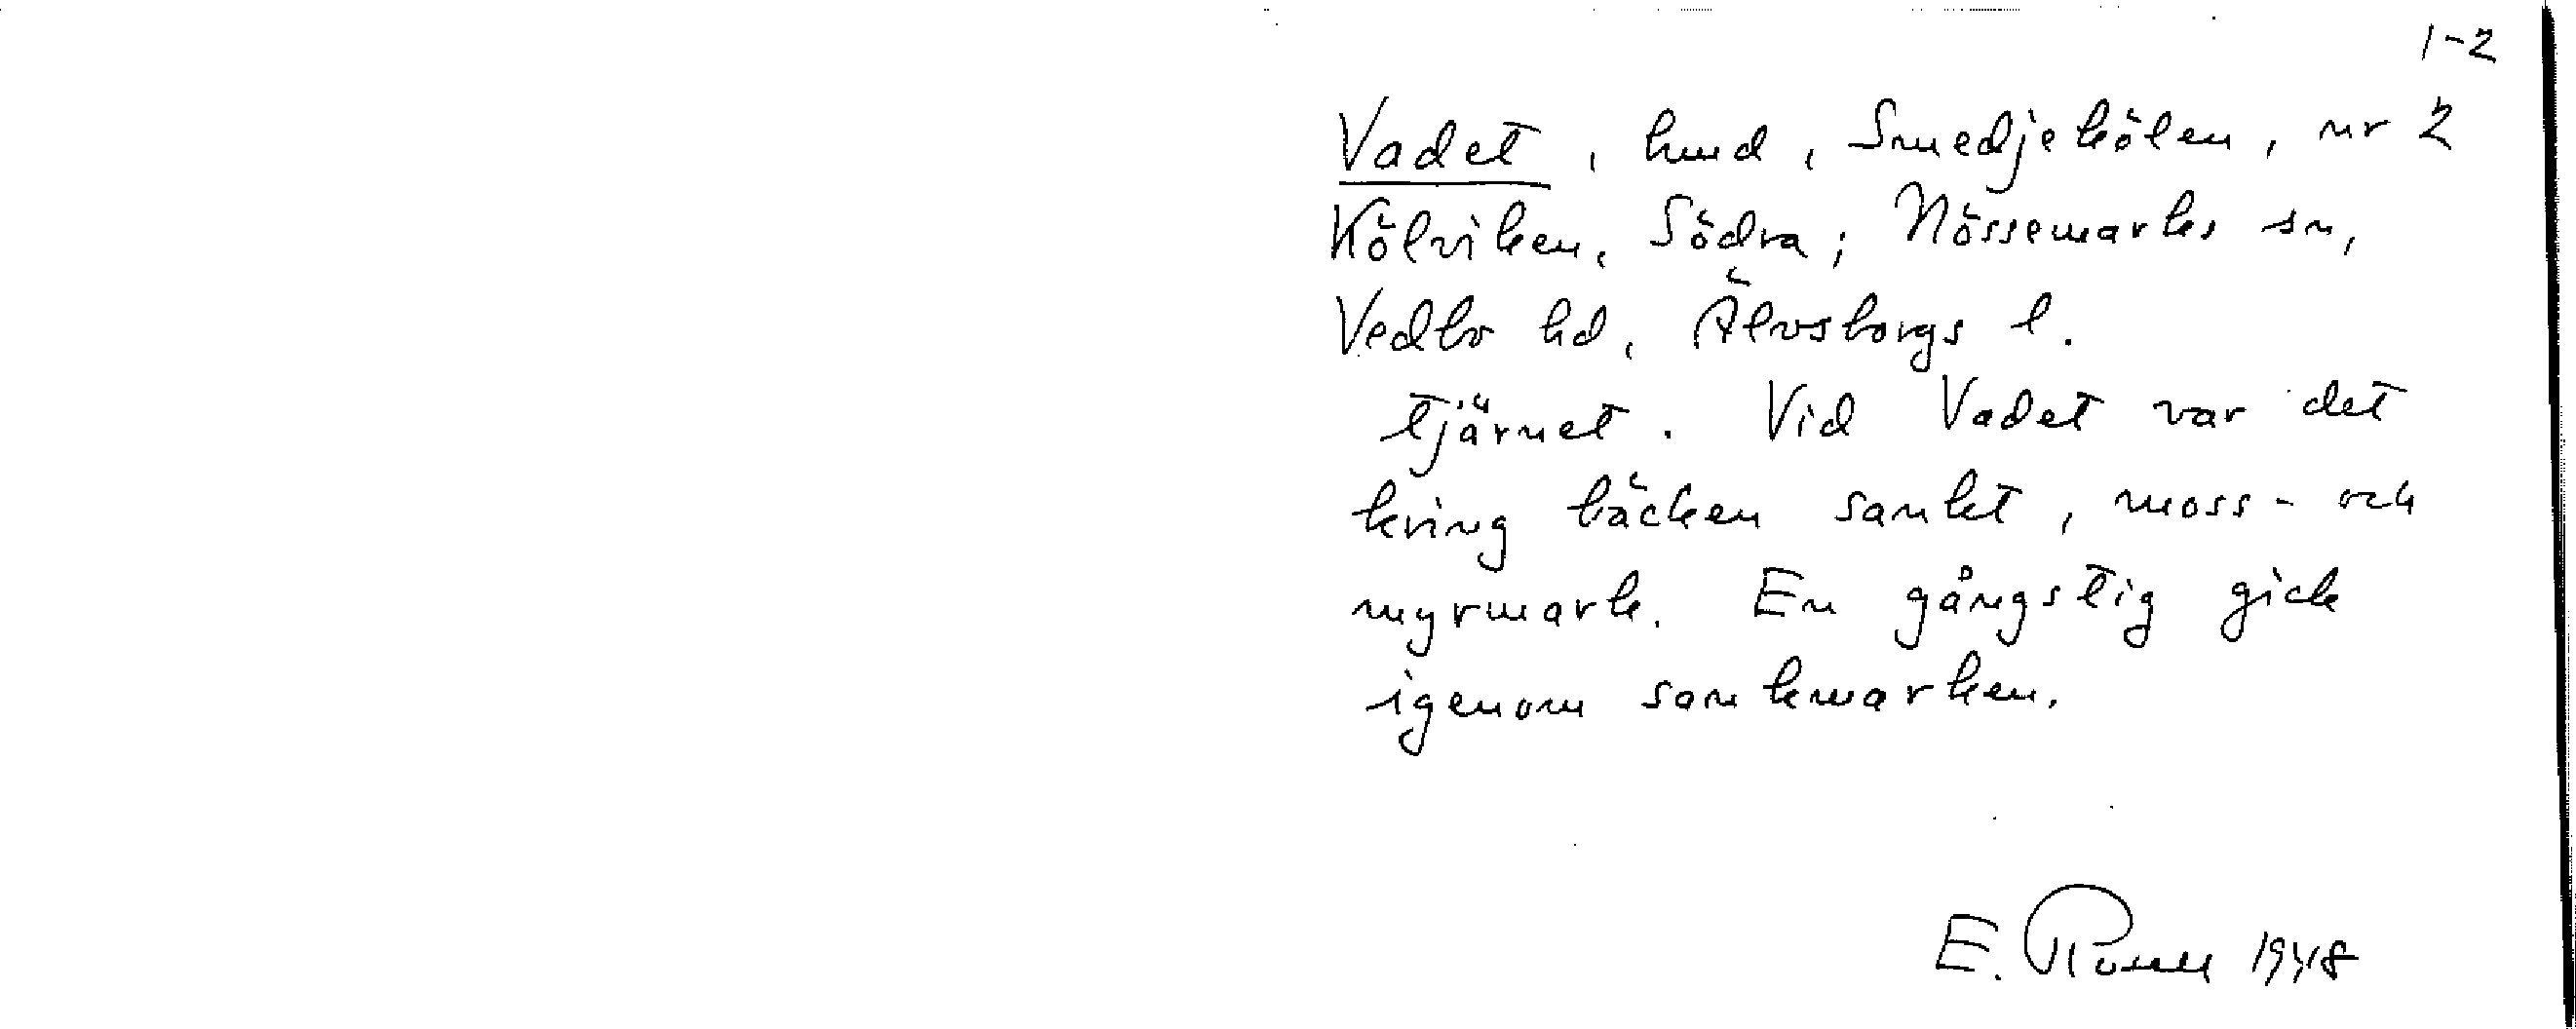 1-2
Vadet, hmd, Smedjekölen, nr 2
Kölviken, Södra; Nössemarks sn,
Vedbo hd, Älvsborgs l.
tjärnet. Vid Vadet var det
kring bäcken sankt, moss- och
myrmark. En gångstig gick
igenom sankmarken.
E. 1948